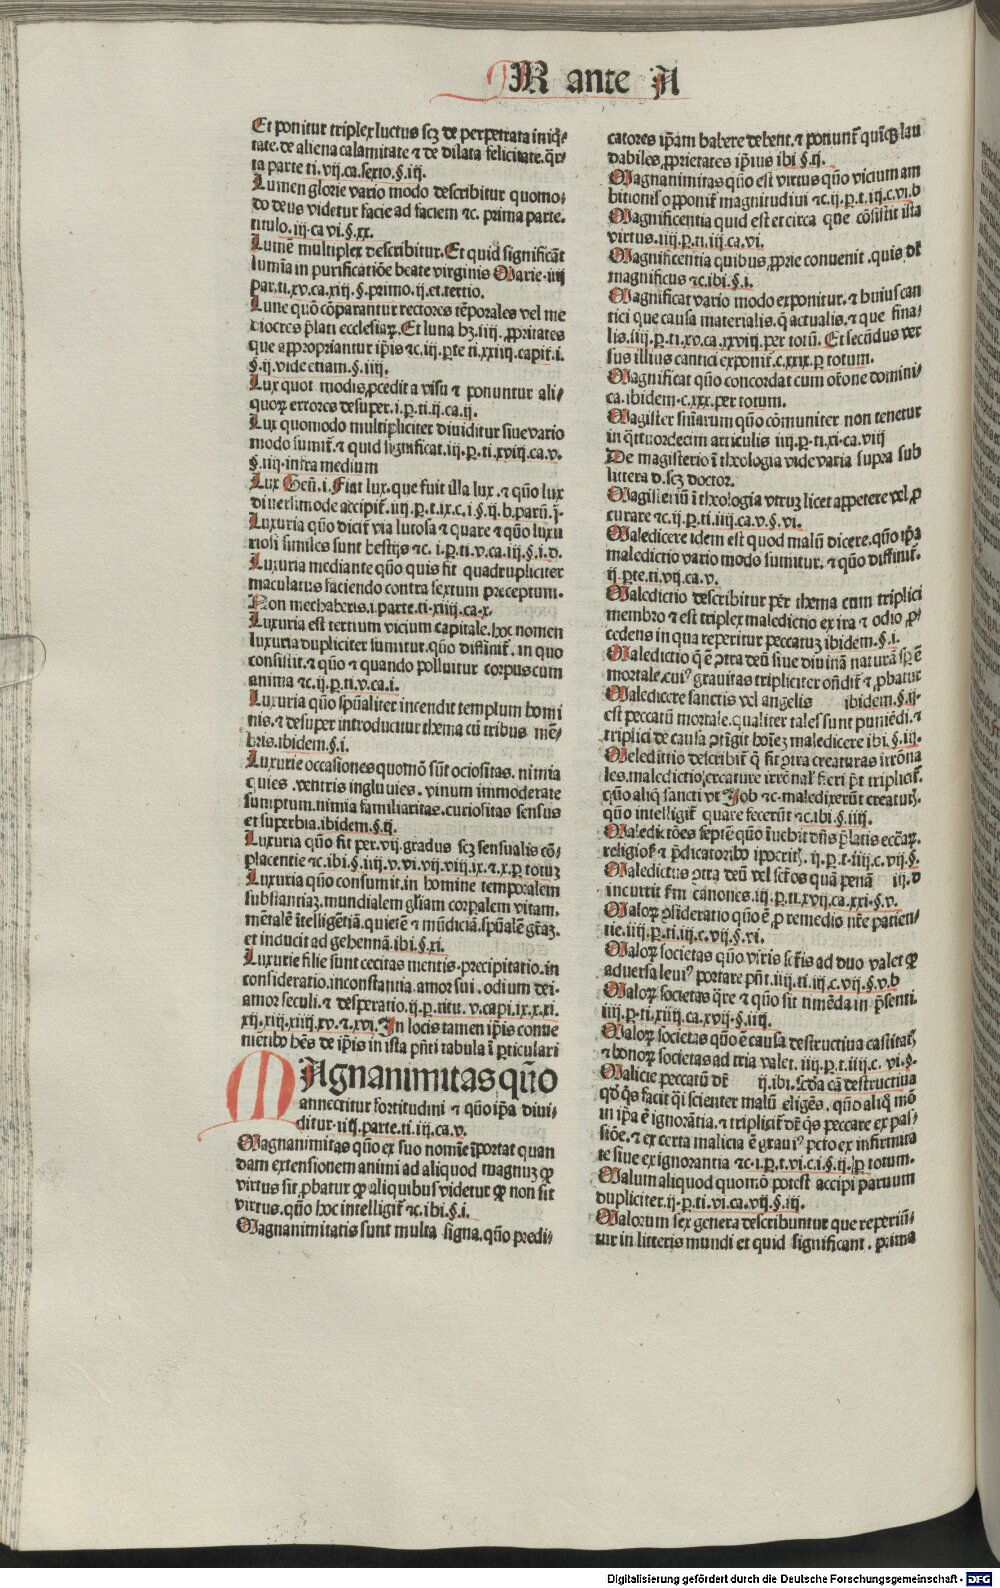 M ante A
Et ponitur triplex luctus scꝫ de perpetrata iniq̇⸗
tate. de aliena calamitate ⁊ de dilata felicitate. q̈r⸗
ta parte ti. vij. ca. sexto. §. iij.
Lumen glorie vario modo describitur quomo⸗
do deus videtur facie ad faciem ⁊c. prima parte.
titulo. iij. ca vi. §. xx.
Lumē multiplex describitur. Et quid significāt
lumīa in purificatiōe beate virginis Marie. iiij
par. ti. xv. ca. xiij. §. primo. ij. et. tertio.
Lune quō cōparantur rectores tēporales vel me
diocres p̄lati ecclesiaꝝ. Et luna hꝫ. iiij. ꝓpritates
que appropriantur ip̄is ⁊c. iij. p̄te ti. xxiiij. capit̄. i.
§. ij. vide etiam. §. iiij.
Lux quot modis ꝓcedit a visu ⁊ ponuntur ali⸗
quoꝝ errores desuper. i. p. ti. ij. ca. ij.
Lux quomodo multipliciter diuiditur siue vario
modo sumit᷑. ⁊ quid significat. iij. p. ti. xviij. ca. v.
§. iiij. infra medium
Lux Geñ. i. Fiat lux. que fuit illa lux. ⁊ qūo lux
diuersimode accipit᷑. iiij. p. t. ix. c. i §. ij. b. parū. ꝑ.
Luxuria qūo dicit᷑ via lutosa ⁊ quare ⁊ qūo luxu
riosi similes sunt bestijs ⁊c. i. p. ti. v. ca. iij. §. i. d.
Luxuria mediante qūo quis fit quadrupliciter
maculatus faciendo contra sextum preceptum.
Non mechaberis. i. parte. ti. xiiij. ca. x.
Luxuria est tertium vicium capitale. hoc nomen
luxuria dupliciter sumitur. qūo diffinit᷑. in quo
consistit. ⁊ qūo ⁊ quando polluitur corpus cum
anima ⁊c. ij. p. ti. v. ca. i.
Luxuria qūo spūaliter incendit templum homi
nis. ⁊ desuper introducitur thema cū tribus mē⸗
bris. ibidem. §. i.
Luxurie occasiones quomō sūt ociositas. nimia
quies. ventris ingluuies. vinum immoderate
sumptum. nimia familiaritas. curiositas sensus
et superbia. ibidem. §. ij.
Luxuria qūo fit per. vij. gradus scꝫ sensualis cō⸗
placentie ⁊c. ibi. §. iiij. v. vi. vij. viij. ix. ⁊. x. p totuꝫ
Luxuria qūo consumit. in homine temporalem
substantiaꝫ. mundialem gl̄iam corpalem vitam.
mētalē ītelligētiā. quietē ⁊ mūdiciā. spūalē gr̄aꝫ.
et inducit ad gehennā. ibi. §. xi.
Luxurie filie sunt cecitas mentis. precipitatio. in
consideratio. inconstantia. amor sui. odium dei.
amor seculi. ⁊ desperatio. ij. p. titu. v. capi. ix. x. xi.
xij. xiij. xiiij. xv. ⁊. xvi. In locis tamen ip̄is conue
nietib᷒ hēs de ip̄is in ista pn̄ti tabula ī ꝑticulari
MAgnanimitas qūo
annectitur fortitudini ⁊ qūo ip̄a diui⸗
ditur. iiij. parte. ti. iij. ca. v.
Magnanimitas qūo ex suo nomīe īportat quan
dam extensionem animi ad aliquod magnuꝫ ꝙ
virtus sit ꝓbatur ꝙ aliquibus videtur ꝙ non sit
virtus. qūo hoc intelligit᷑ ⁊c. ibi. §. i.
Magnanimitatis sunt multa signa. qūo predi⸗
catores ip̄am habere debent. ⁊ ponunt᷑ quīqꝫ lau
dabiles ꝓprietates ip̄ius ibi §. ij.
Magnanimitas qūo est virtus qūo vicium am
bitionis opponit᷑ magnitudini ⁊c. ij. p. t. iij. c. vi. b
Magnificentia quid est et circa que cōsistit ista
virtus. iiij. p. ti. iij. ca. vi.
Magnificentia quibus ꝓprie conuenit. quis dr̄
magnificus ⁊c. ibi. §. i.
Magnificat vario modo exponitur. ⁊ huius can
tici que causa materialis. q̄ actualis. ⁊ que fina⸗
lis. iiij. p. ti. xv. ca. xxviij. per totū. Et secūdus ver
sus illius cantici exponit᷑. c. xxix. p totum.
Magnificat qūo concordat cum or̄one domini⸗
ca. ibidem. c. xxx. per totum.
Magister sn̄iarum qūo cōmuniter non tenetur
in q̈ttuordecim articulis iiij. p. ti. xi. ca. viij
De magisterio ī theologia vide varia supra sub
littera d. scꝫ doctor.
Magisteriū ī theologia vtruꝫ licet appetere vel ꝓ
curare ⁊c. ij. p. ti. iiij. ca. v. §. vi.
Maledicere idem est quod malū dicere. qūo ip̄a
maledictio vario modo sumitur. ⁊ qūo diffinit᷑.
ij. p̄te. ti. vij. ca. v.
Maledictio describitur per thema cum triplici
membro ⁊ est triplex maledictio ex ira ⁊ odio ꝓ⸗
cedens in qua reperitur peccatuꝫ ibidem. §. i.
Maledictio q̄ ē ↄtra deū siue diuinā naturā sp̄ ē
mortale. cui᷒ grauitas tripliciter on̄dit᷑ ⁊ ꝓbatur
Maledicere sanctis vel angelis ibidem. §. ij.
est peccatū mortale. qualiter tales sunt puniēdi. ⁊
triplici de causa ↄtigit hoīeꝫ maledicere ibi §. iij.
Meledittio describit᷑ q̄ fit ↄtra creaturas irrōna
les. maledictio creature irrōnal᷑ fieri p̄t triplicit᷑.
qūo aliq̄ sancti vt Job ⁊c. maledixerūt creatur᷑.
qūo intelligit᷑ quare fecerūt ⁊c. ibi. §. iiij.
Maledictōes septē qūo īuehit dn̄s p̄latis eccl̄aꝝ.
religios᷑ ⁊ p̄dicatorib᷒ ipocrit᷑. ij. p. t. iiij. c. vij. §.
Maledictus ↄtra deū vel sct̄os quā penā iij. d
incurrit km̄ canones. iij. p. ti. xvij. ca. xxi. §. v.
Maloꝝ ↄsideratio qūo ē ꝓ remedio nr̄e patien⸗
tie. iiij. p. ti. iij. c. vij. §. vi.
Maloꝝ societas qūo viris sct̄is ad duo valet ꝙ
aduersa leui᷒ portare pn̄t. iiij. ti. iij. c. vij. §. v. b
Maloꝝ societas q̈re ⁊ qūo sit timēda in p̄senti
iiij. p. ti. xiiij. ca. xvij. §. iiij.
Maloꝝ societas qūo ē causa destructiua castitat᷑
⁊ bonoꝝ societas ad tria valet. iiij. p. t. iiij. c. vi. §.
Malicie peccatū dr̄ ij. ibi. scd̄a cā destructiua
qd̄ q̇s facit q̇i scienter malū eligēs. qūo aliq̄ mō
in ip̄a ē ignorātia. ⁊ triplicit᷑ dr̄ q̇s peccare ex pas⸗
siōe. ⁊ ex certa malicia ē graui᷒ pctō ex infirmita
te siue ex ignorantia ⁊c. i. p. t. vi. c. i. §. ij. p totum.
Malum aliquod quomō potest accipi paruum
dupliciter. ij. p. ti. vi. ca. vij. §. iij.
Malorum sex genera describuntur que reperiū⸗
tur in litteris mundi et quid significant. prima
Digitalisierung gefördert durch die Deutsche Forschungsgemeinschaft - DFG